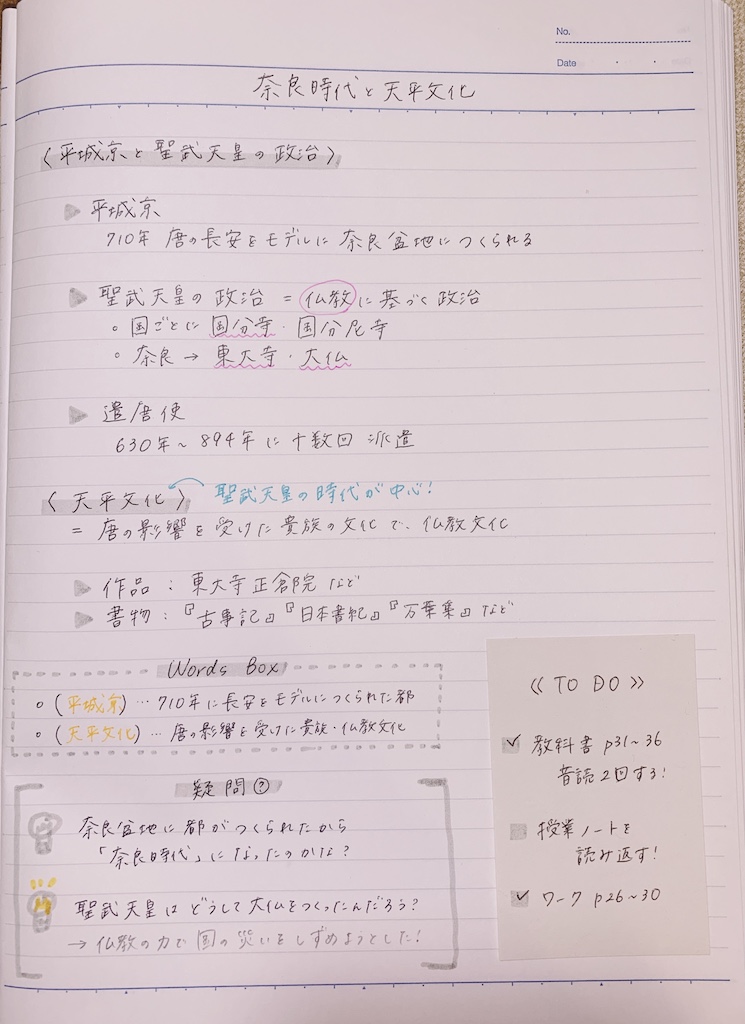 No.
Date
奈良時代と天平文化
〈平城京と聖武天皇の政治〉
平城京
710年 唐の長安をモデルに奈良盆地につくられる
聖武天皇の政治 = 仏教に基づく政治
国ごとに国分寺・国分尼寺
奈良 → 東大寺・大仏
遣唐使
630年~894年に十数回 派遣
〈天平文化〉 聖武天皇の時代が中心!
= 唐の影響を受けた貴族の文化で、仏教文化
作品 : 東大寺正倉院 など
書物 : 『古事記』『日本書紀』『万葉集』など
Words Box
(平城京) … 710年に長安をモデルにつくられた都
(天平文化) … 唐の影響を受けた貴族・仏教文化
疑問?
奈良盆地に都がつくられたから
「奈良時代」になったのかな?
聖武天皇はどうして大仏をつくったんだろう?
→ 仏教の力で国の災いをしずめようとした!
《TO DO》
✓ 教科書 p31~36
音読2回する!
授業ノートを
読み返す!
✓ ワーク p26~30